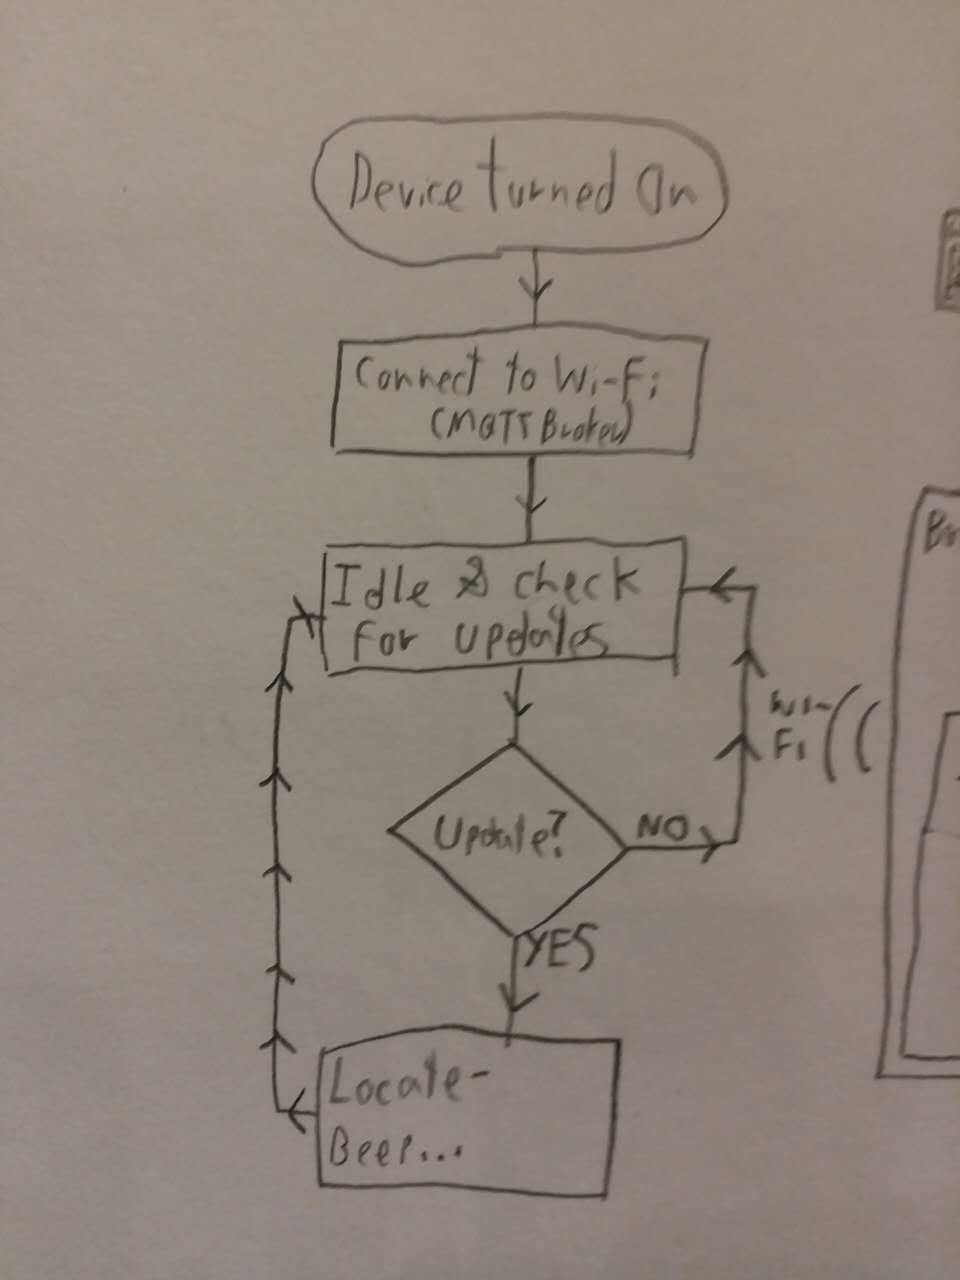 Device turned On
Connect to Wi-Fi
(MQTT Broker)
Idle & check
for updates
Wi-
Fi
Update?
NO
YES
Locate-
Beep...